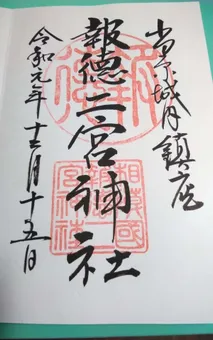 小田原城内鎮座
報徳二宮神社
令和元年十二月十五日
相模國
報徳二宮神社